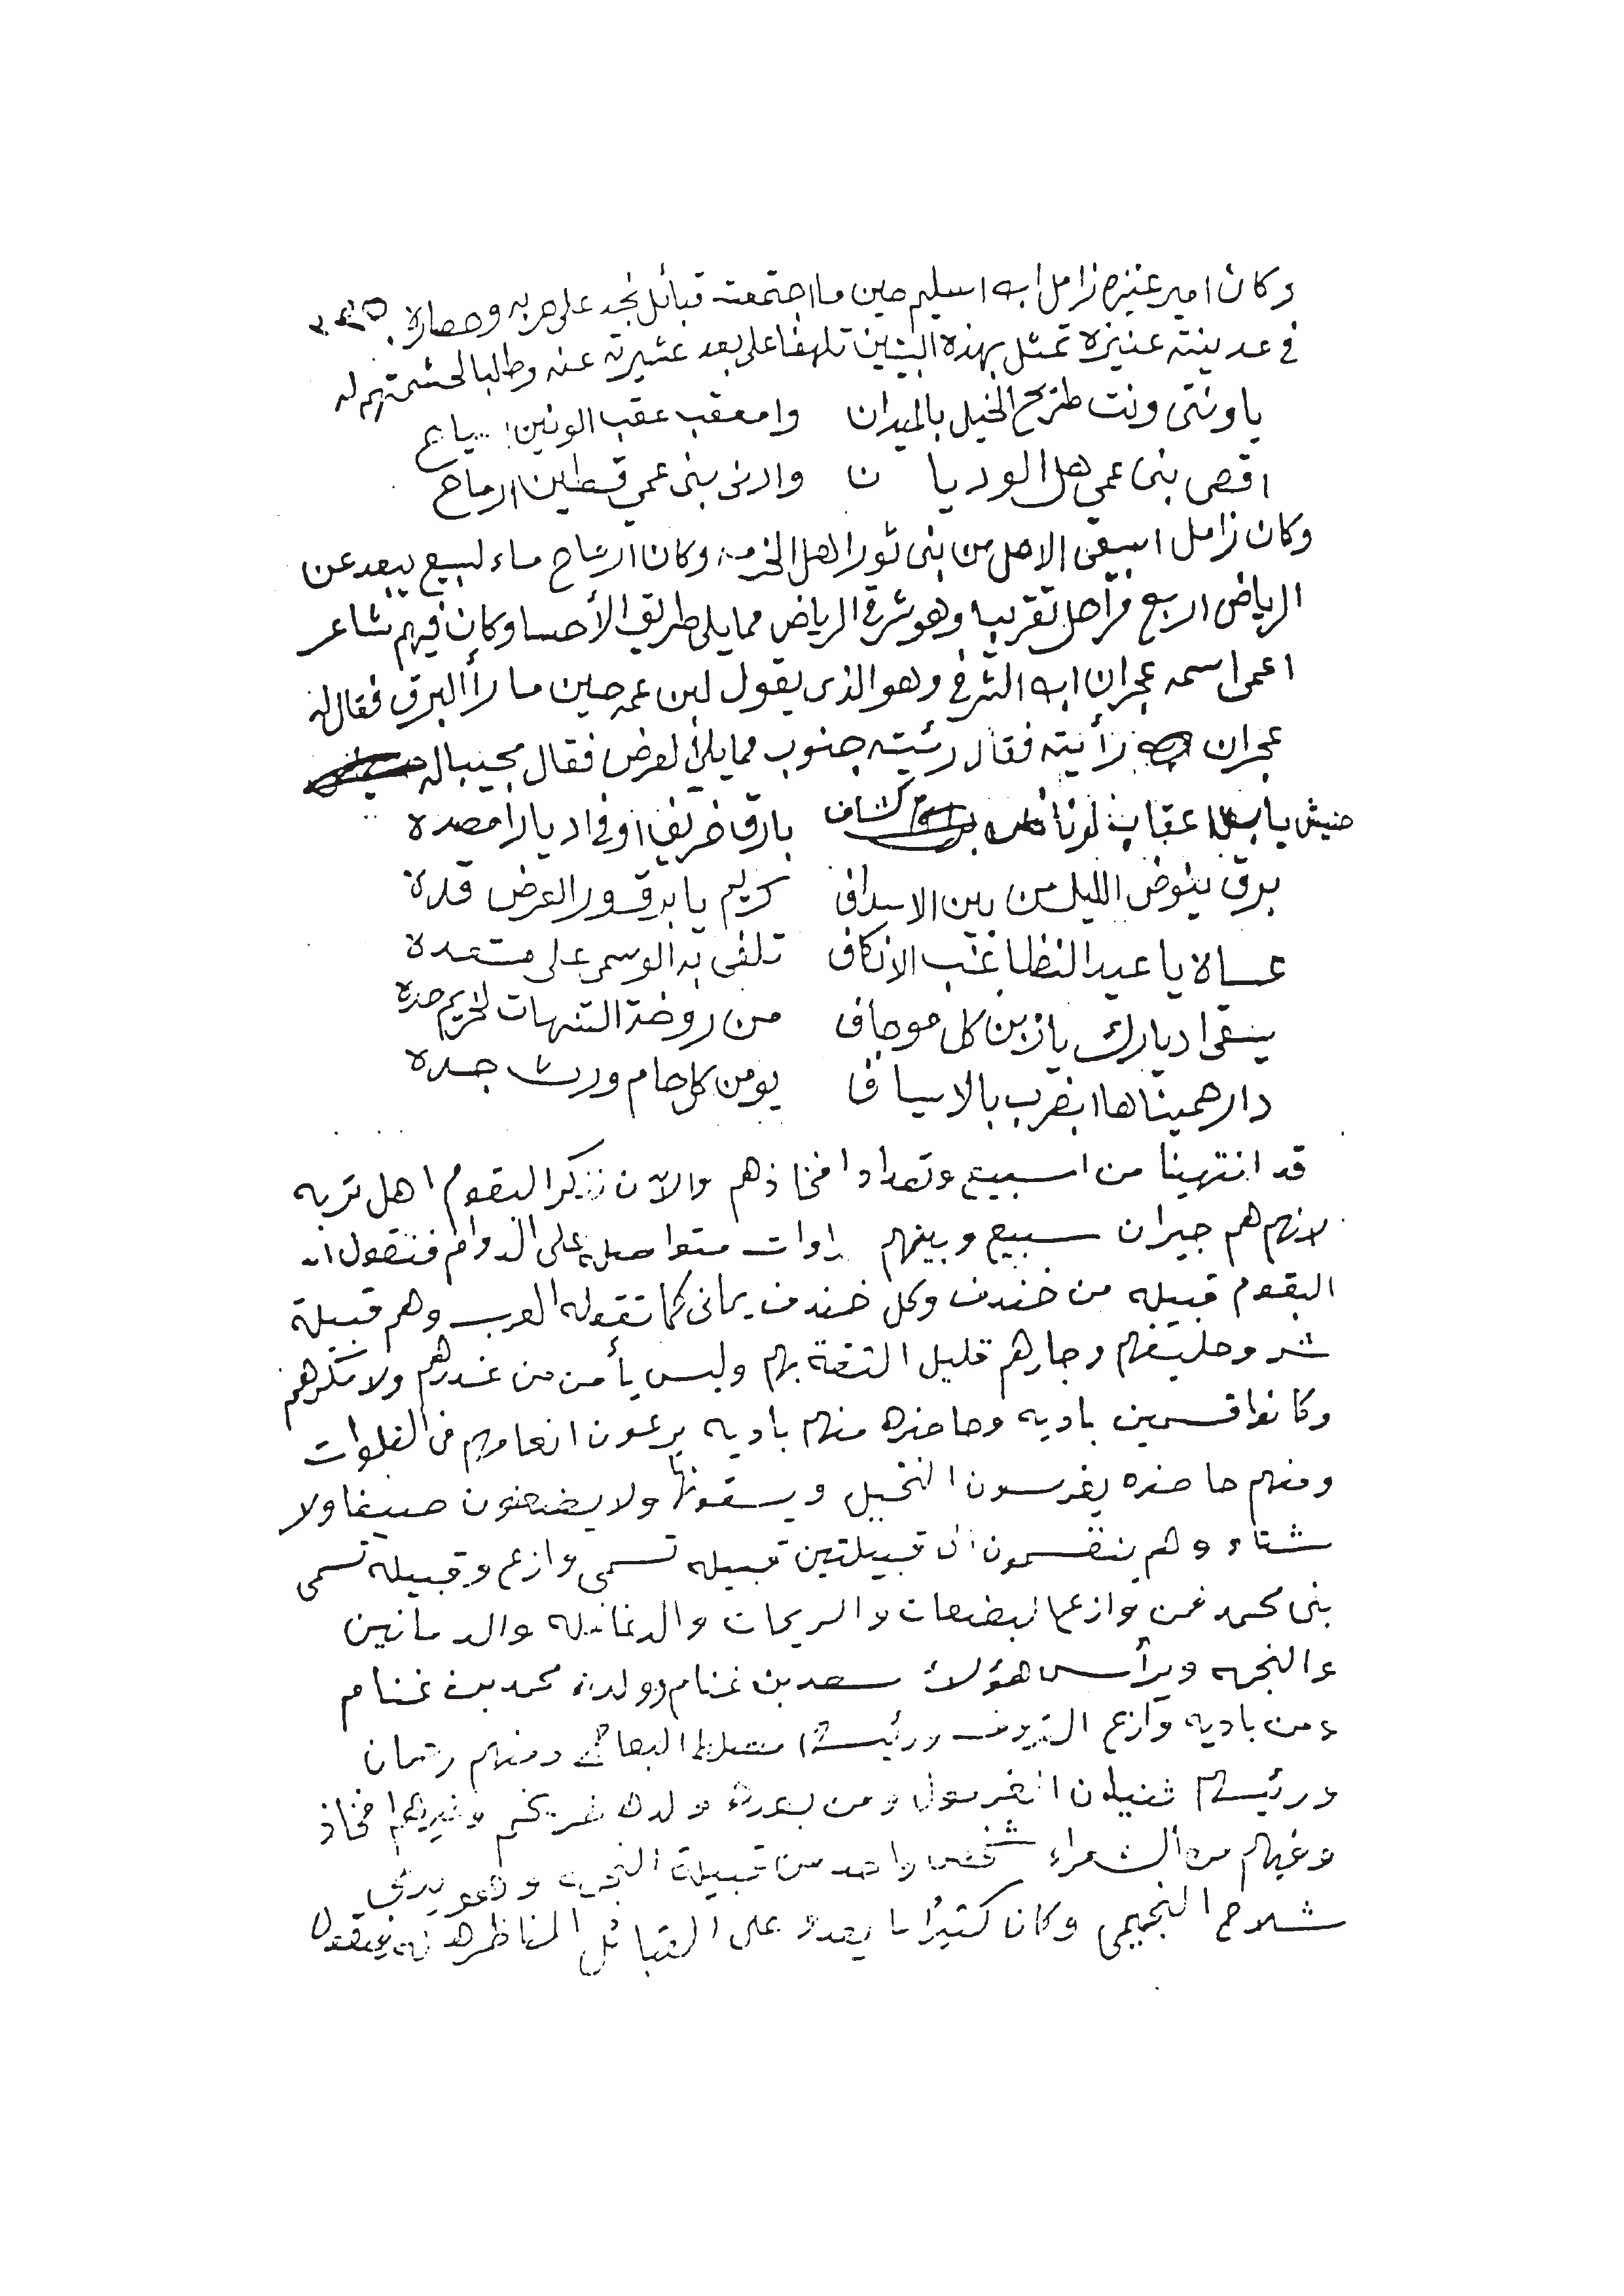 وكان امير عنيزه زامل ابه اسليم حين ما اجتمعت قبائل نجد على حربه وحصاره
في مدينته عنيزة تمثل بهذه البيتين تلهفا على بعد عشيرته عنه وطالبا لحشمتهم له
ياونتى ونت طريح الخيل بالميدان وامعقب عقب الونين
اقصى بنى عمي هل الوديا ن وادنى بنى عمي قسطين ارماح
وكان زامل اسبيعى الاصل من بنى ثور اهل الخرمه وكان ارماح ماء لسبيع يبعد عن
الرياض اربع مراحل تقريبا وهو شرقي الرياض مما يلي طريق الأحسا وكان فيهم شاعر
اعمى اسمه عجران ابه الشرفي وهو الذى يقول لبن عمه حين ما رأ البرق فقال له
عجران رأيته فقال رئيته جنوب مما يلي العرض فقال مجيبا له
بارق خريف اوفى اديار امصده
برق ينوض الليل من بين الاسداف كريم يا برق ورا العرض قده
عساه يا عيد النظا غب الانكاف تلفى به الوسمى على مستعده
يسقى اديارك يازبن كل موجاف من روضة التنهات لخريم حده
دار هميناها ابضرب بالاسيا ف يومن كل حام ورث جده
قد انتهينا من اسبيع وتعداد افخاذهم والآن نذكر البقوم اهل تربه
لانهم هم جيران سبيع وبينهم متواصله على الدوام فنقول ان
البقوم قبيله من خندف وكل خندف يمانى كما تقوله العرب وهم قبيلة
شر وحليفهم وجارهم قليل الثقة بهم وليس يأمن من غدرهم ولا مكرهم
وكانوا قسمين باديه وحاضره منهم باديه يرعون انعامهم في الفلوات
ومنهم حاضره يغرسون النخيل ويسقونها ولا يضعنون صيفا ولا
شتاء وهم ينقسمون الى قبيلتين قبيله تسمى وازع وقبيله تسمى
بنى محمد فمن وازع البضعات والسريحات والدغافيله والدمانين
والنجمه ويرأس هؤلاء سعد بن غنام وولده محمد بن غنام
ومن باديه وازع ورئيسهم ومنهم رحمان
ورئيسهم ثنيان ومن بعده ولده وغيرهم افخاذ
وفيهم من الشعراء شخص واحد من قبيلة النجمه وهو يدعى
شلاح النجيمي وكان كثيرا ما يعدو على القبائل المناظره له فيقول